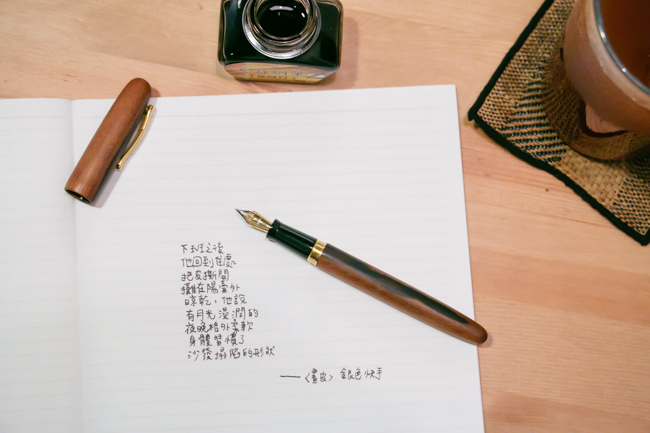 下班之後
他回到住處
把皮撕開
攤在陽台外
晾乾,他說
有月光浸潤的
夜晚格外柔軟
身體習慣了
沙發塌陷的形狀
——〈畫皮〉銀色快手